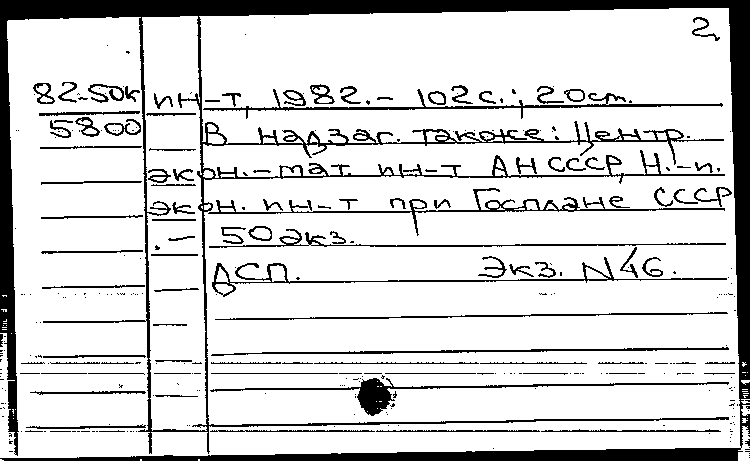 2.
82-50к ин-т, 1982.- 102 с.; 20 см.
5800 В надзаг. также: Центр.
экон.-мат. ин-т АН СССР, Н.-и.
экон. ин-т при Госплане СССР
.- 50 экз.
ДСП. Экз. N 46.